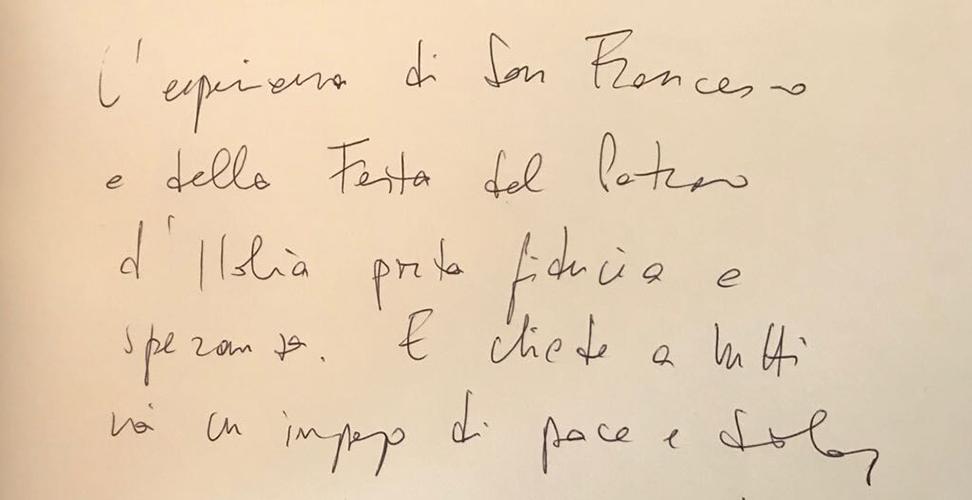 L'esperienza di San Francesco
e della Festa del Patrono
d'Italia porta fiducia e
speranza. E chiede a tutti
noi un impegno di pace e